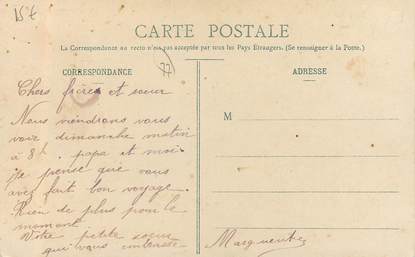 15 €
CARTE POSTALE
La Correspondance au recto n'est pas acceptée par tous les Pays Etrangers. (Se renseigner à la Poste.)
77
CORRESPONDANCE
ADRESSE
Chers frères et soeur
Nous viendrons vous
voir dimanche matin
à 8h. papa et moi
Je pense que vous
avez fait bon voyage.
Rien de plus pour le
moment.
Votre petite soeur
qui vous embrasse
M